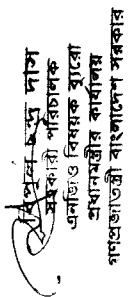 চন্দ্র দাস
সহকারী পরিচালক
এনজিও বিষয়ক ব্যুরো
প্রধানমন্ত্রীর কার্যালয়
গণপ্রজাতন্ত্রী বাংলাদেশ সরকার